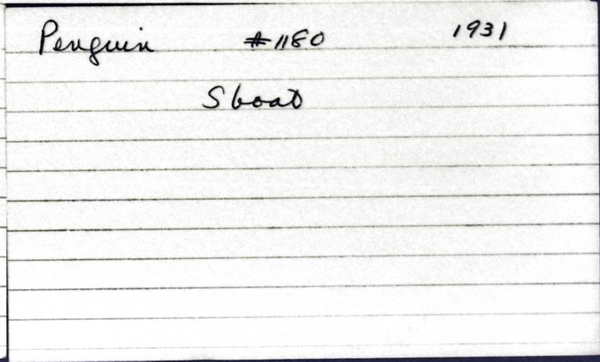 Penguin #1180 1931
S boat